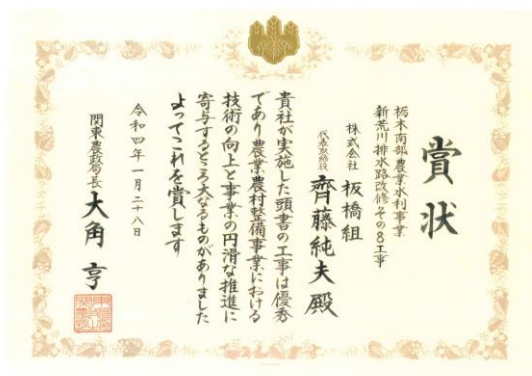 賞状
栃木南部農業水利事業
新荒川排水路改修その8工事
株式会社 板橋組
代表取締役 齊藤純夫殿
貴社が実施した頭書の工事は優秀
であり農業農村整備事業における
技術の向上と事業の円滑な推進に
寄与するところ大なるものがありました
よってこれを賞します
令和四年一月二十八日
関東農政局長 大角亨